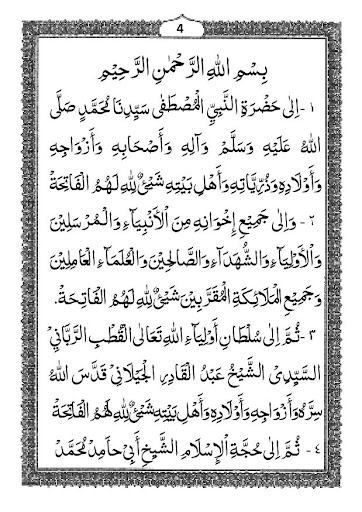 4
بِسْمِ اللهِ الرَّحْمٰنِ الرَّحِيْمِ
١- اِلَى حَضْرَةِ النَّبِيِّ الْمُصْطَفَى سَيِّدِنَا مُحَمَّدٍ صَلَّى
اللهُ عَلَيْهِ وَسَلَّمْ وَآلِهِ وَأَصْحَابِهِ وَأَزْوَاجِهِ
وَأَوْلَادِهِ وَذُرِّيَّاتِهِ وَأَهْلِ بَيْتِهِ شَيْئٌ لِلّٰهِ لَهُمُ الْفَاتِحَةُ
٢- وَاِلَى جَمِيْعِ إِخْوَانِهِ مِنَ الْأَنْبِيَآءِ وَالْمُرْسَلِيْنَ
وَالْأَوْلِيَآءِ وَالشُّهَدَآءِ وَالصَّالِحِيْنَ وَالْعُلَمَآءِ الْعَامِلِيْنَ
وَجَمِيْعِ الْمَلَائِكَةِ الْمُقَرَّبِيْنَ شَيْئٌ لِلّٰهِ لَهُمُ الْفَاتِحَةُ.
٣- ثُمَّ اِلَى سُلْطَانِ أَوْلِيَآءِ اللهِ تَعَالَى الْقُطْبِ الرَّبَّانِي
السَّيِّدِى الشَّيْخِ عَبْدُ الْقَادِرِ الْجَيْلَانِي قَدَّسَ اللهُ
سِرَّهُ وَأَزْوَاجِهِ وَأَوْلَادِهِ وَأَهْلِ بَيْتِهِ شَيْئٌ لِلّٰهِ لَهُمُ الْفَاتِحَةُ
٤- ثُمَّ اِلَى حُجَّةِ الْإِسْلَامِ الشَّيْخِ أَبِي حَامِدْ مُحَمَّدْ